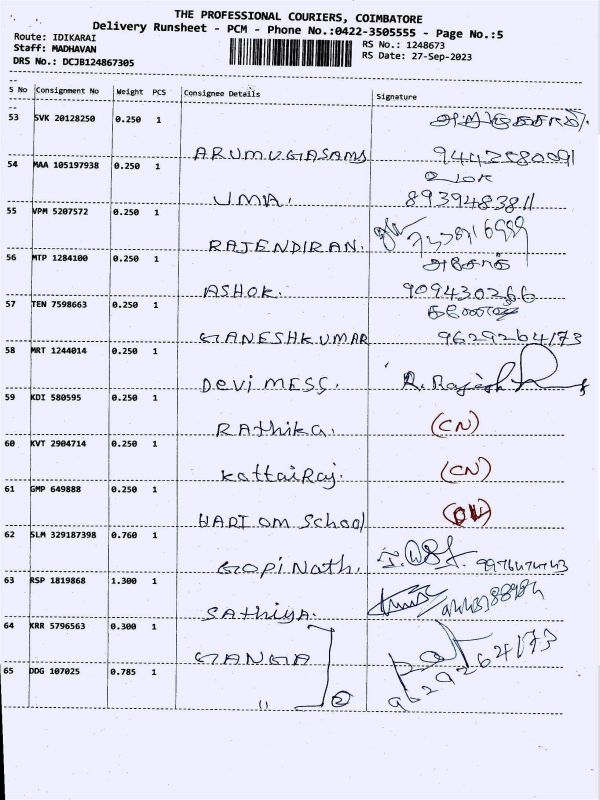 THE PROFESSIONAL COURIERS, COIMBATORE
Delivery Runsheet - PCM - Phone No.:0422-3505555 - Page No.:5
Route: IDIKARAI
Staff: MADHAVAN
DRS No.: DCJB124867305
RS No.: 1248673
RS Date: 27-Sep-2023
S No Consignment No Weight PCS Consignee Details Signature
53 SVK 20128250 0.250 1
ARUMUGASAMY
54 MAA 105197938 0.250 1 உமா
UMA. 8939483811
55 VPM 5207572 0.250 1
RAJENDIRAN.
56 MTP 1284100 0.250 1 அசோக்
ASHOK. 909430266
57 TEN 7598663 0.250 1
GANESHKUMAR 9629264173
58 MRT 1244014 0.250 1
Devi MESS. R. Rajesh
59 KDI 580595 0.250 1
RAthika. (CN)
60 KVT 2904714 0.250 1
kottaiRaj. (CN)
61 GMP 649888 0.250 1
HARI OM School
62 SLM 329187398 0.760 1
GopiNath.
63 RSP 1819868 1.300 1
SAthiya.
64 KRR 5796563 0.300 1
GANGA 9629264173
65 DDG 107025 0.785 1
" 2